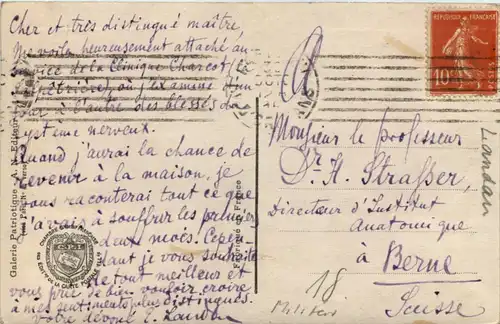 Cher et très distingué maître,
Me voilà heureusement attaché au
service de la Clinique Charcot
où j'examine d'un
jour à l'autre des blessés du
système nerveux.
Quand j'aurai la chance de
revenir à la maison, je
vous raconterai tout ce que
j'avais à souffrir les premiers
deux mois. Cepen
dant je vous souhaite
le tout meilleur et
vous prie de bien vouloir croire
à mes sentiments plus distingués.
Votre dévoué E.
Galerie Patriotique
Fabriqué en France
REPUBLIQUE FRANÇAISE
10
Monsieur le Professeur
Dr. H. Strasser,
Directeur d'Institut
Anatomique
à Berne
Suisse
18